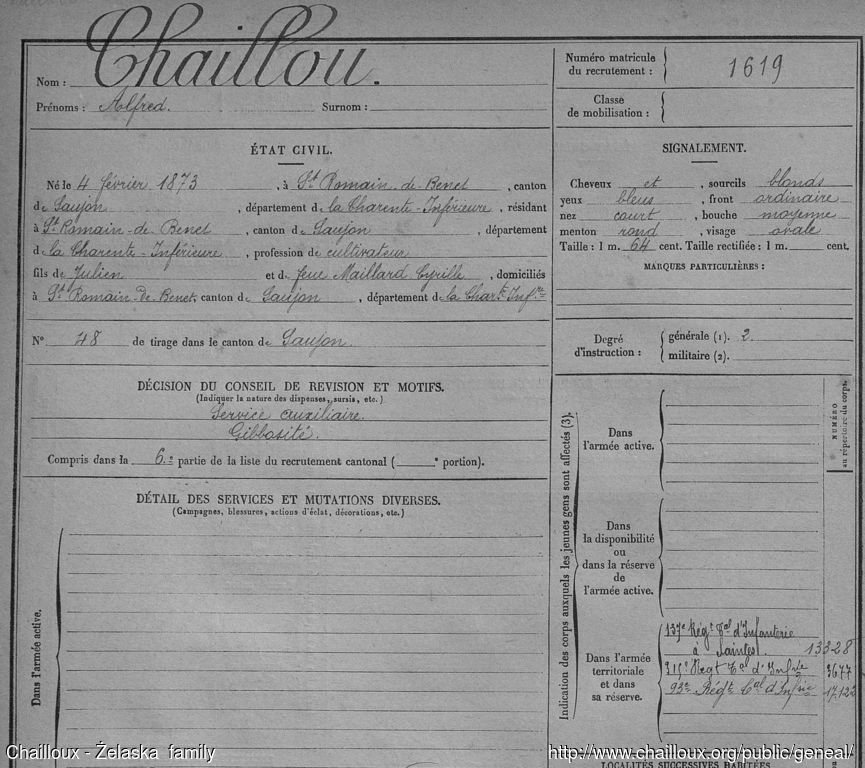 Nom : Chaillou.
Prénoms : Alfred. Surnom :
Numéro matricule du recrutement : 1619
Classe de mobilisation :
ÉTAT CIVIL.
Né le 4 février 1873, à St Romain-de-Benet, canton
de Saujon, département de la Charente-Inférieure, résidant
à St Romain-de Benet, canton de Saujon, département
de la Charente-Inférieure, profession de cultivateur
fils de Julien et de feue Maillard Cyrille, domiciliés
à St Romain-de-Benet, canton de Saujon, département de la Chart. Infre
N° 48 de tirage dans le canton de Saujon.
SIGNALEMENT.
Cheveux et, sourcils blonds
yeux bleus, front ordinaire
nez court, bouche moyenne
menton rond, visage ovale
Taille : 1 m. 64 cent. Taille rectifiée : 1 m. cent.
MARQUES PARTICULIÈRES :
Degré d'instruction :
générale (1). 2.
militaire (2).
DÉCISION DU CONSEIL DE REVISION ET MOTIFS.
(Indiquer la nature des dispenses, sursis, etc.)
Service auxiliaire.
Gibbosité.
Compris dans la 6.e partie de la liste du recrutement cantonal ( e portion).
DÉTAIL DES SERVICES ET MUTATIONS DIVERSES.
(Campagnes, blessures, actions d'éclat, décorations, etc.)
Dans l'armée active.
Indication des corps auxquels les jeunes gens sont affectés (3).
NUMÉRO
au répertoire du corps.
Dans
l'armée active.
Dans
la disponibilité
ou
dans la réserve
de
l'armée active.
Dans l'armée
territoriale
et dans
sa réserve.
137e Régt Tal d'Infanterie
à Saintes. 1332 8
315e Regt Tal d'Infrie 3677
93e Régt Tal d'Infrie 17.122
LOCALITÉS SUCCESSIVES HABITÉES
Chailloux - Żelaska family
http://www.chailloux.org/public/geneal/